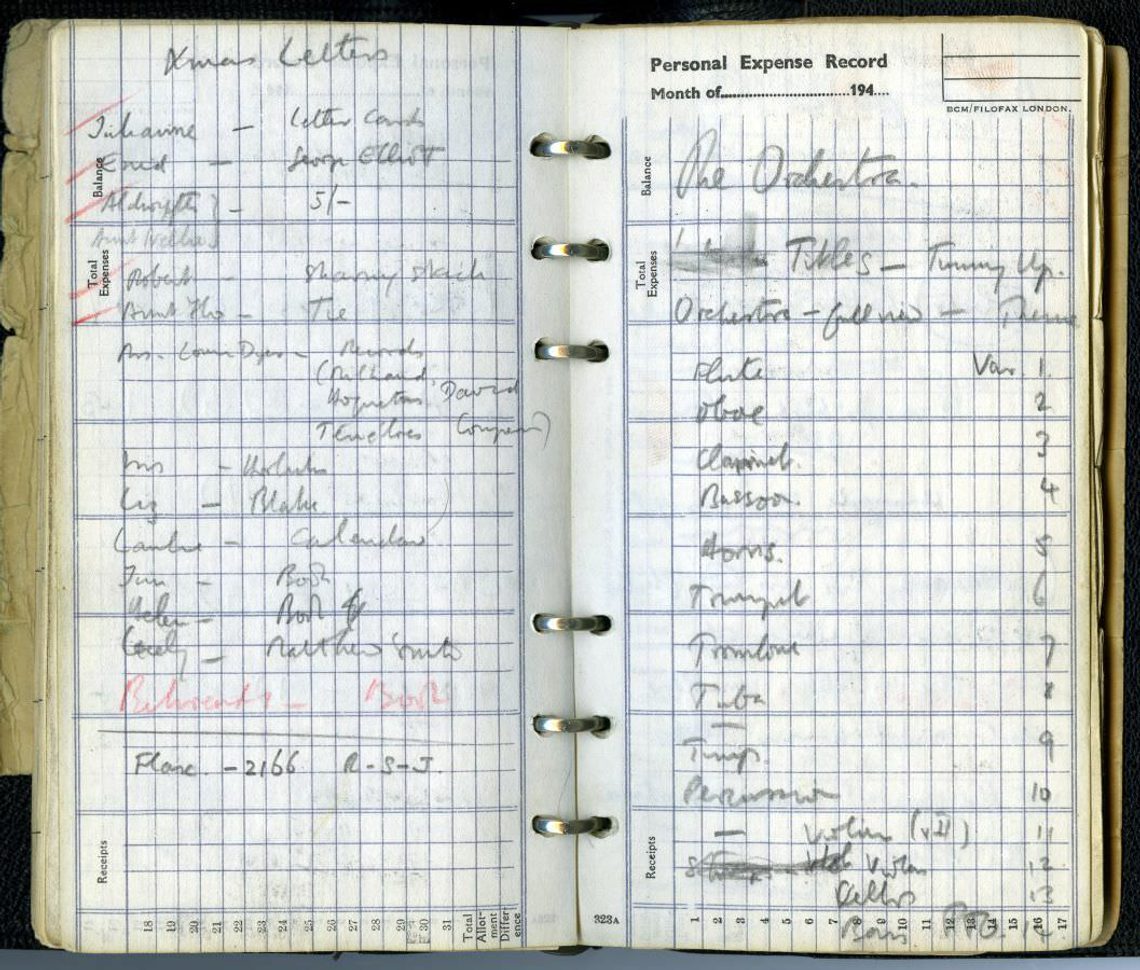 Xmas Letters
— Letter Cards
Enid — George Elliott
} — 5/-
Robert —
Aunt Flo — Tie
Mrs. Louise Dyer — Records
(Milhaud,
David
Tenebres Couperin)
Liz — Blake
— Calendar
— Book
Helen — Book
Cecily — Matthew Smith
— Book
Flax. — 2166 R-S-J.
Balance
Total Expenses
Receipts
18 19 20 21 22 23 24 25 26 27 28 29 30 31 Total Allot-ment Differ-ence
Personal Expense Record
Month of 194
BCM/FILOFAX LONDON.
Balance
The Orchestra.
Total Expenses
Titles — Tuning Up.
Orchestra — full view — Theme
Flute Var. 1.
Oboe 2
Clarinet. 3
Bassoon. 4
Horns. 5
Trumpet 6
Trombone 7
Tuba 8
—
Timps. 9
Percussion 10
— Violins (v II) 11
Violas 12
Cellos 13
Receipts
Bass P.T.O.
323A
1 2 3 4 5 6 7 8 9 10 11 12 13 14 15 16 17